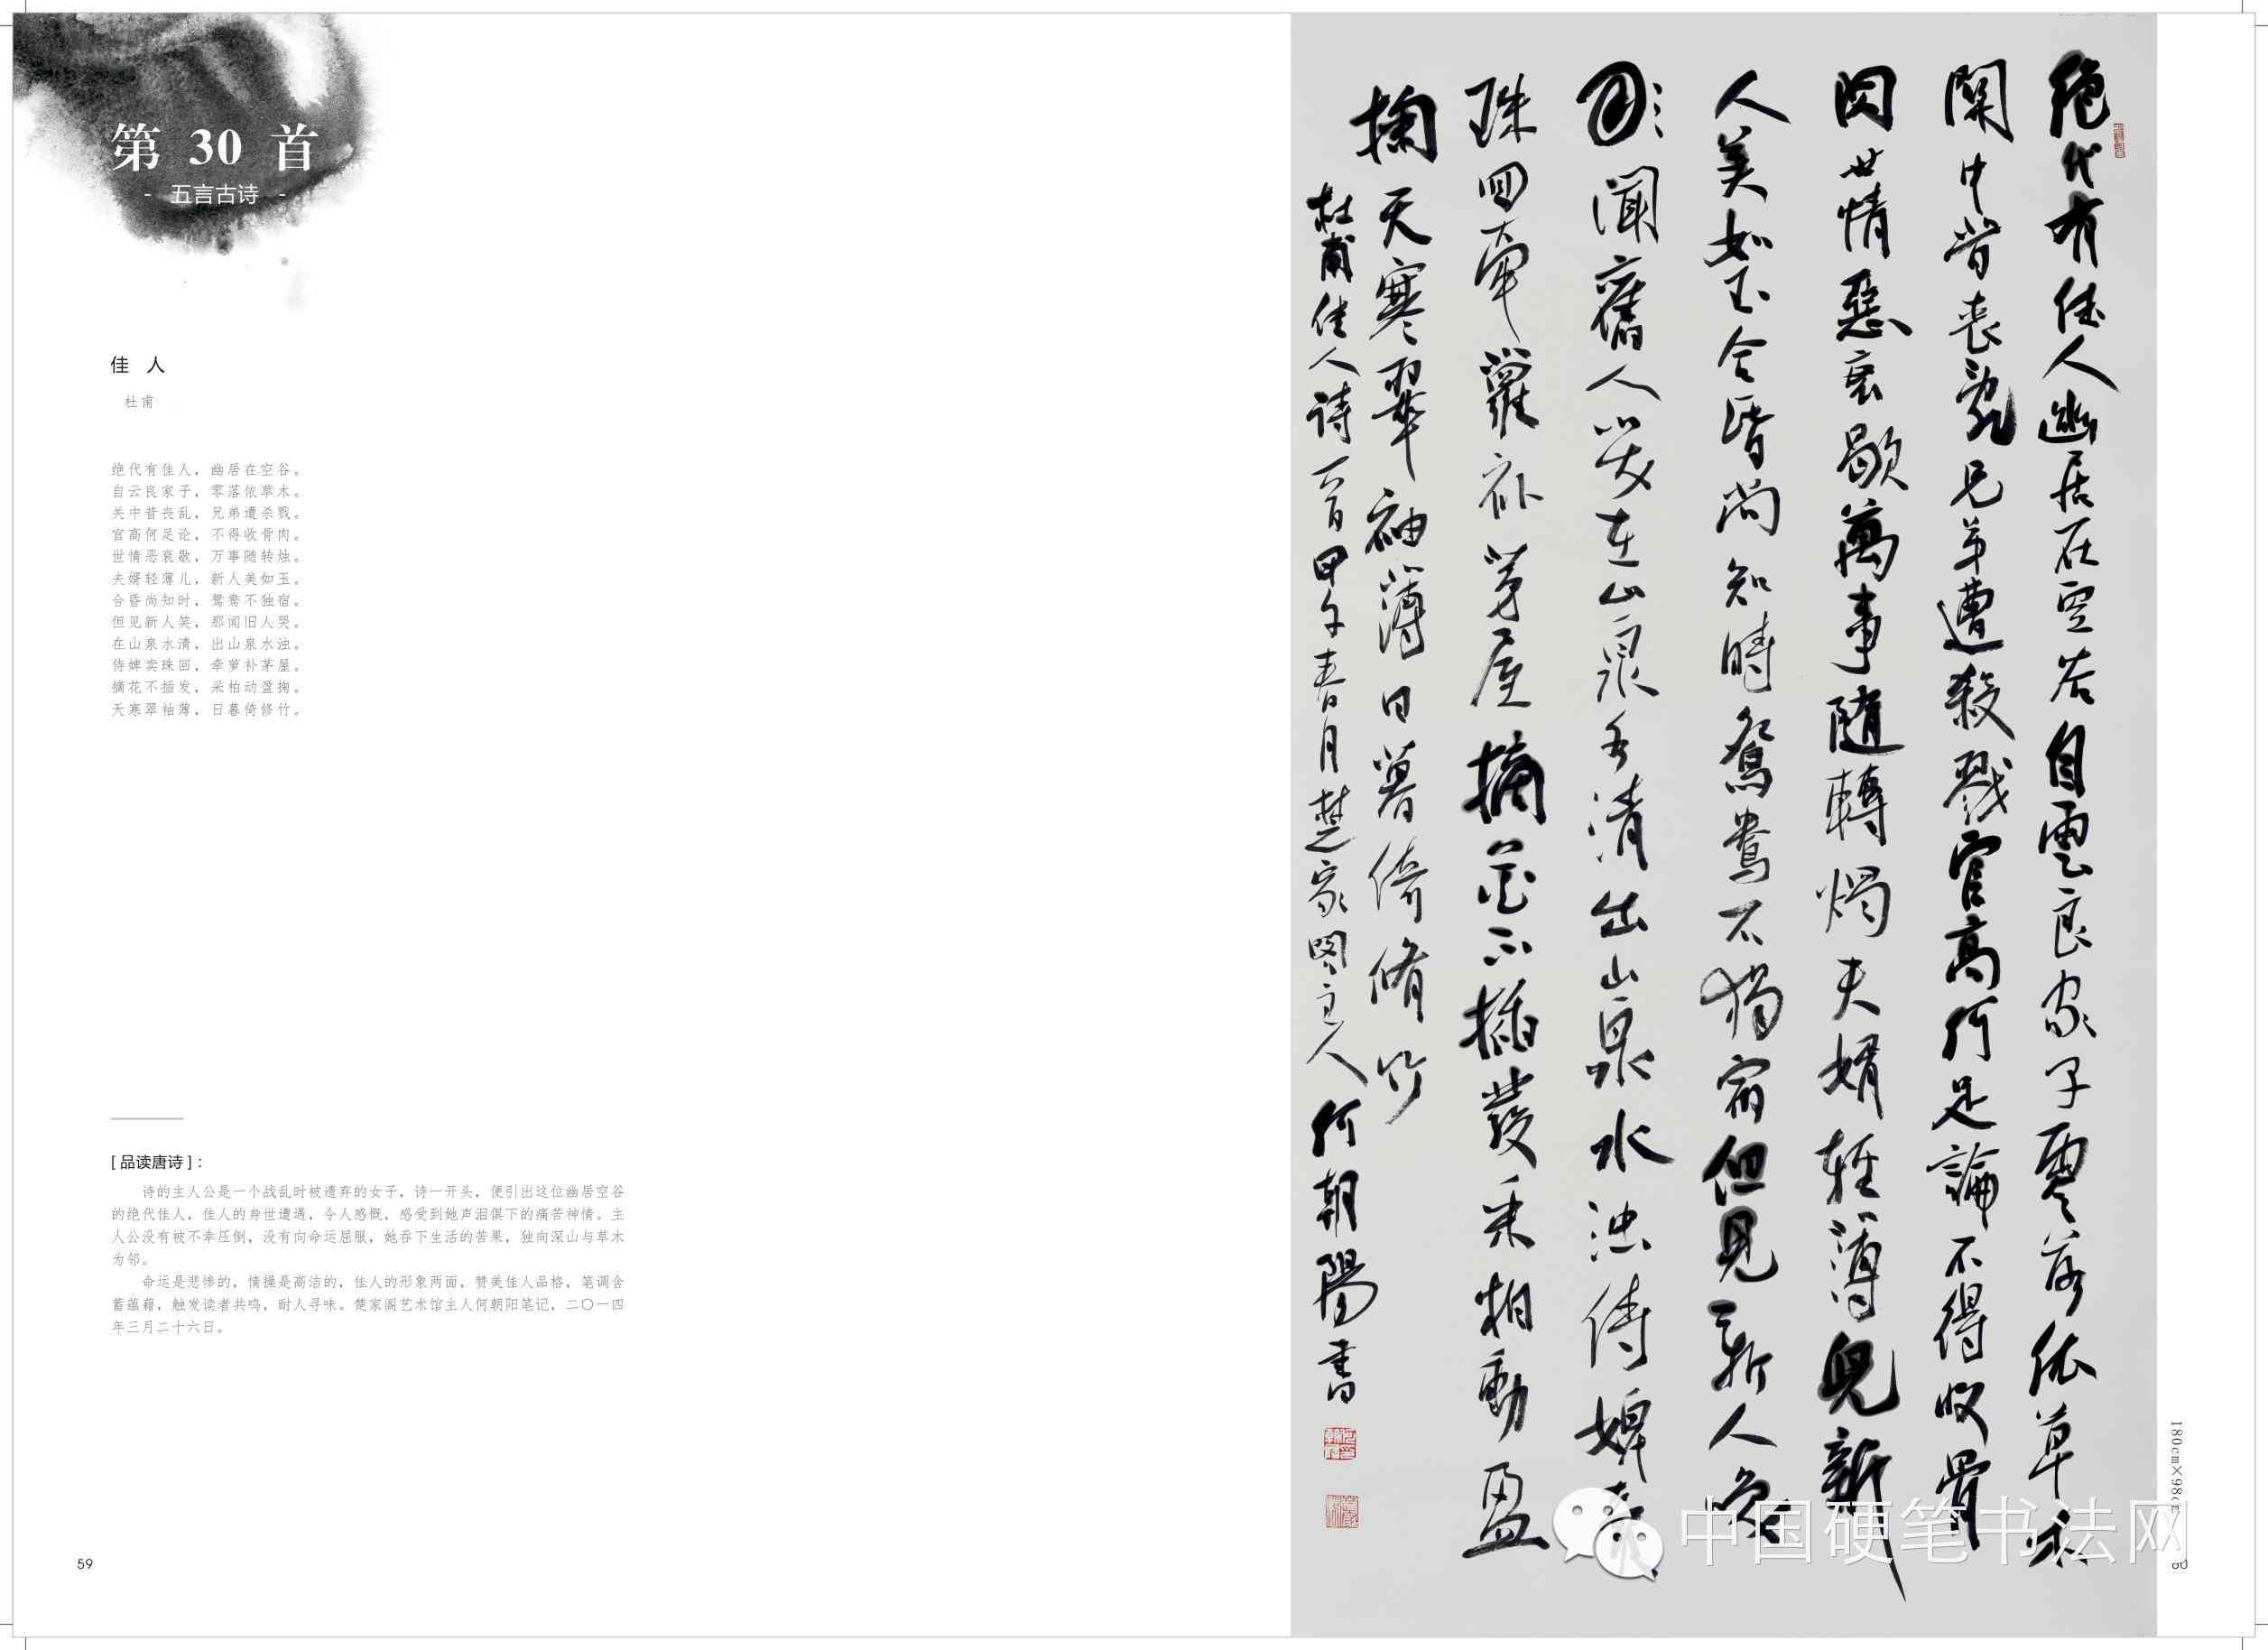 第 30 首
- 五言古诗 -
佳 人
杜甫
绝代有佳人，幽居在空谷。
自云良家子，零落依草木。
关中昔丧乱，兄弟遭杀戮。
官高何足论，不得收骨肉。
世情恶衰歇，万事随转烛。
夫婿轻薄儿，新人美如玉。
合昏尚知时，鸳鸯不独宿。
但见新人笑，那闻旧人哭。
在山泉水清，出山泉水浊。
侍婢卖珠回，牵萝补茅屋。
摘花不插发，采柏动盈掬。
天寒翠袖薄，日暮倚修竹。
[ 品读唐诗 ]：
诗的主人公是一个战乱时被遗弃的女子，诗一开头，便引出这位幽居空谷
的绝代佳人，佳人的身世遭遇，令人感慨，感受到她声泪俱下的痛苦神情。主
人公没有被不幸压倒，没有向命运屈服，她吞下生活的苦果，独向深山与草木
为邻。
命运是悲惨的，情操是高洁的，佳人的形象两面，赞美佳人品格，笔调含
蓄蕴藉，触发读者共鸣，耐人寻味。楚家阁艺术馆主人何朝阳笔记，二〇一四
年三月二十六日。
59
絕代有佳人幽居在空谷自雲良家子零落依草木
關中昔喪亂兄弟遭殺戮官高何足論不得收骨
肉世情惡衰歇萬事隨轉燭夫婿輕薄兒新
人美如玉合昏尚知時鴛鴦不獨宿但見新人笑
那聞舊人哭在山泉水清出山泉水浊侍婢賣
珠回牽蘿補茅屋摘花不插發采柏動盈
掬天寒翠袖薄日暮倚脩竹
杜甫佳人詩一首甲午春月楚家閣主人何朝陽書
180cm×98c
中国硬笔书法网
60